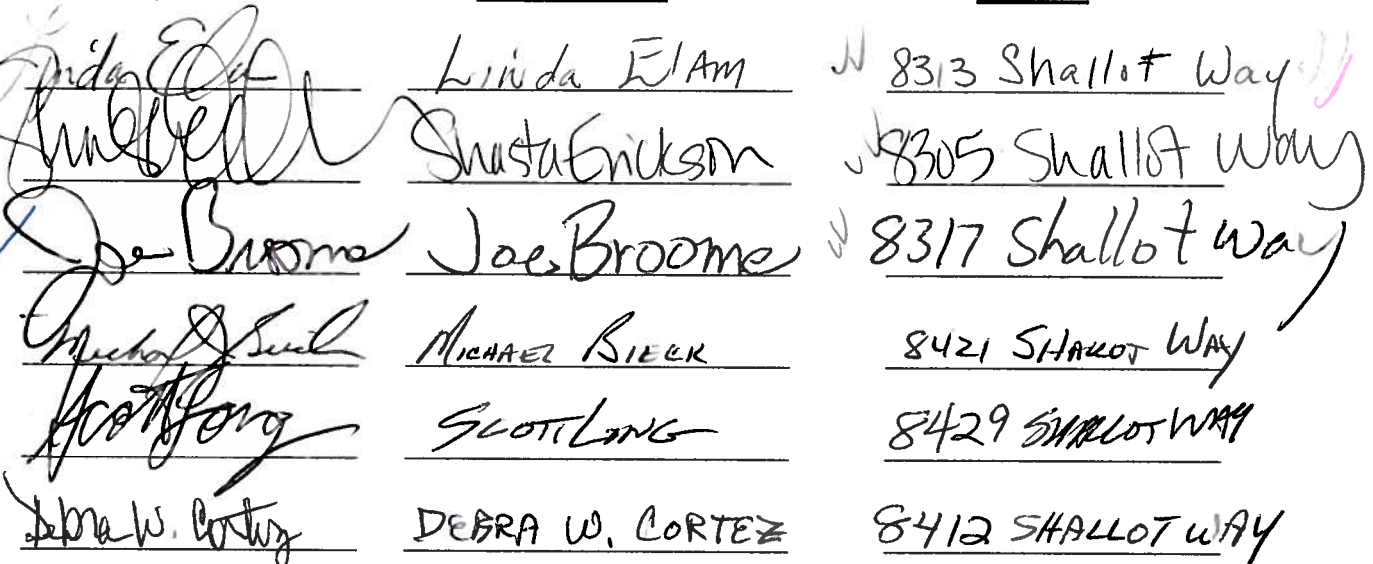 Linda Elam Linda Elam 8313 Shallot Way
Shasta Erickson 8305 Shallot Way
Joe Broome Joe Broome 8317 Shallot Way
Michael J. Bieck MICHAEL BIECK 8421 SHALLOT WAY
Scott Long SCOTT LONG 8429 SHALLOT WAY
Debra W. Cortez DEBRA W. CORTEZ 8412 SHALLOT WAY